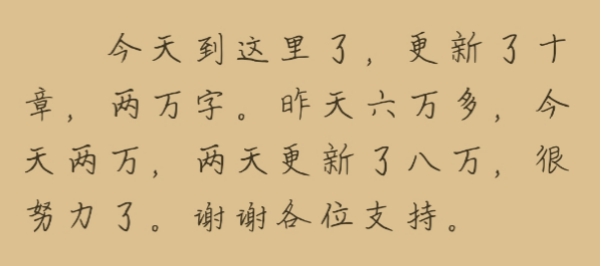 今天到这里了，更新了十
章，两万字。昨天六万多，今
天两万，两天更新了八万，很
努力了。谢谢各位支持。